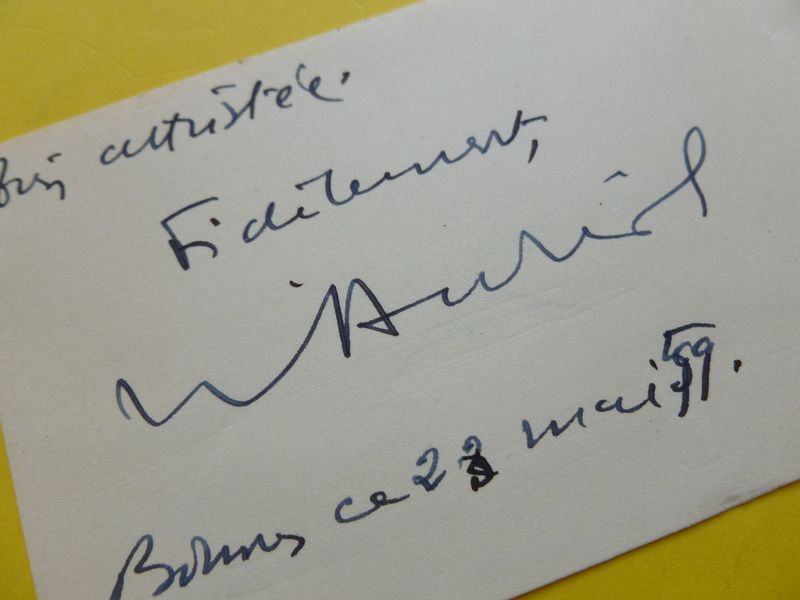 bien attristée.
Fidèlement,
V Auriol
Bormes ce 23 mai 59.